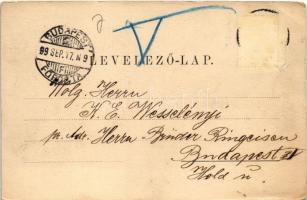 BUDAPEST
99 SEP. 17. N 9
FŐPOSTA
LEVELEZŐ-LAP.
Wolg. Herrn
K. E. Wesselényi
pr. Adr. Herrn Binder Ringeisen
Budapest IV
Hold u.